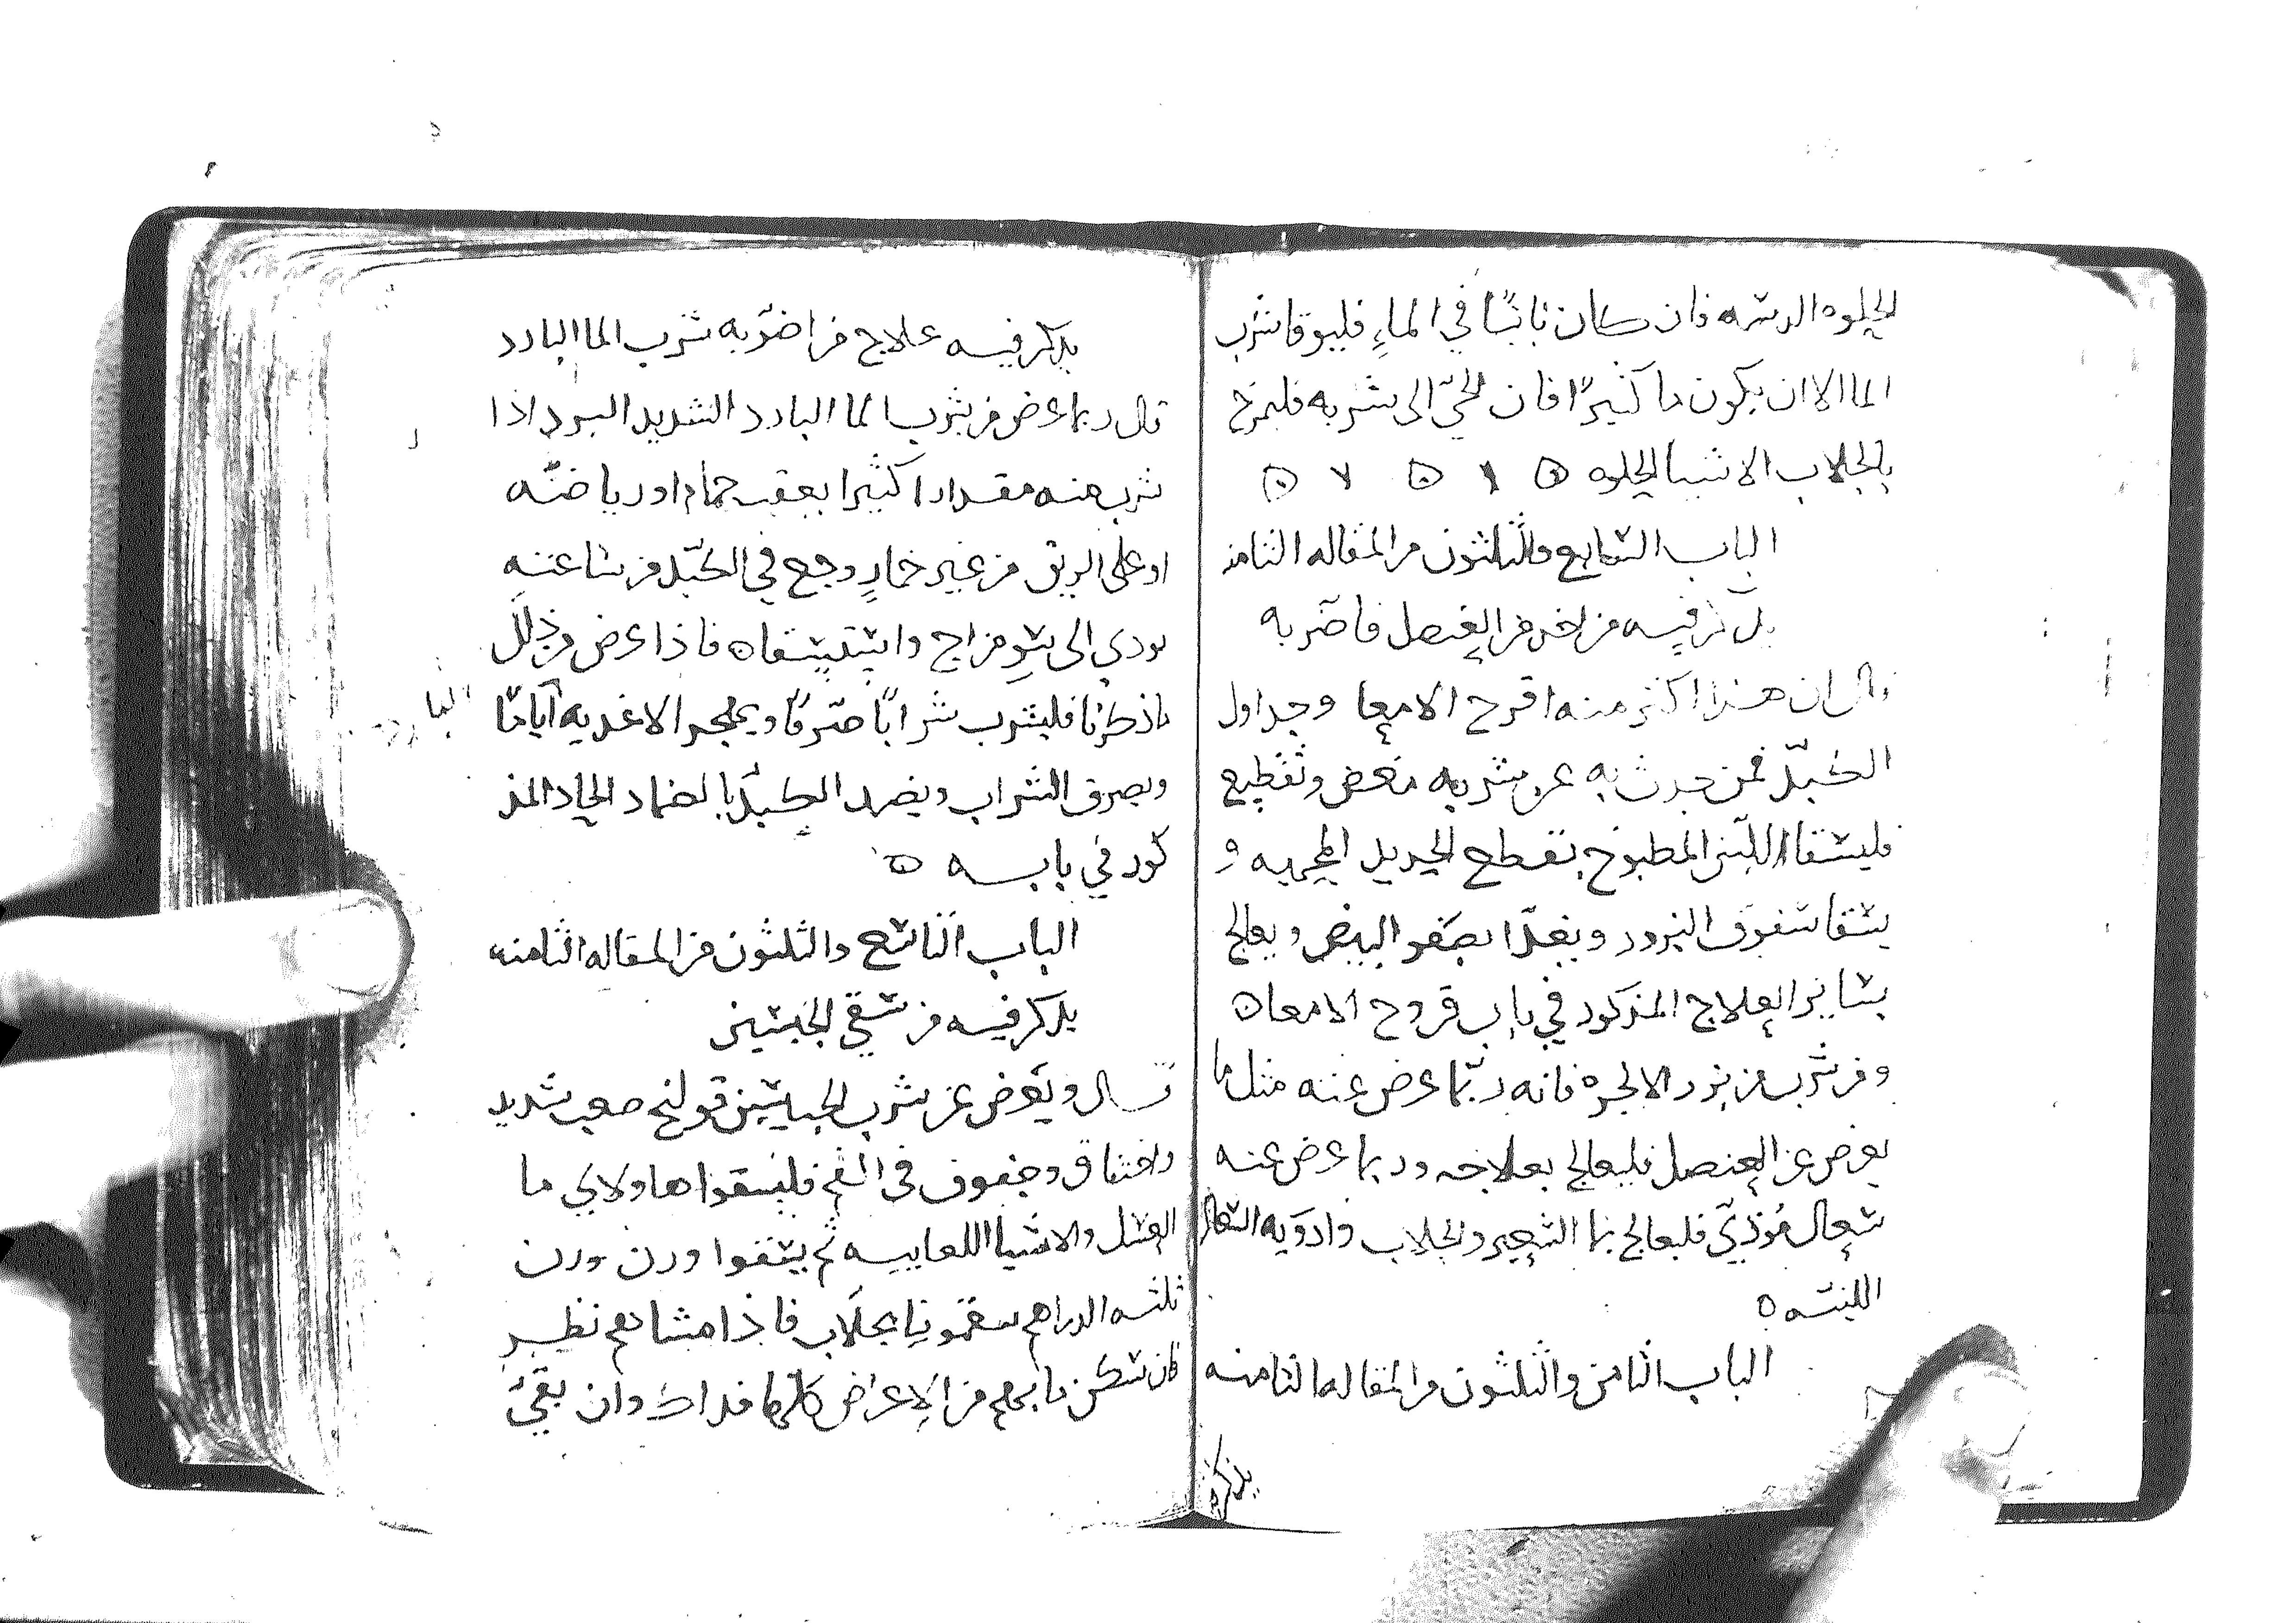 الحلوه الدسمه فان كان ناشبًا في الماءِ فليوقا شرب
الما الا ان يكون ما كثيرًا فان الجئ الى شربه فليمزج
بالجلاب الاشيا الحلوه
الباب السّابع والثلثون من المقاله الثامنه
يذكر فيه من اخد من العنصل فاضر به
قال ان هذا اكثر منه اقرح الامعا وجداول
الكبد فمن حدث به عن شربه مغص وتقطيع
فليسقا اللبن المطبوخ بقطع الحديد المحميه و
يسقا سفوف البزور ويغدّا بصفو البيض ويعالج
بساير العلاج المذكور في باب قروح الامعا
ومن شرب من بزر الانجره فانه ربّما عرض عنه مثل ما
يعرض عن العنصل فليعالج بعلاجه وربما عرض عنه
سعال مُؤذيّ فليعالج بما الشعير والجلاب وادويه السعال
اللينه
الباب الثامن والثلثون من المقاله الثامنه
يذكر فيه
يذكر فيه علاج من اضرّ به شرب الما البارد
قال ربما عرض من شرب الما البارد الشديد البرد اذا
شرب منه مقدارا كثيرا بعقب حمام او رياضه
او على الريق من غير خمارٍ وجع في الكبد من ساعته
يودي الى سو مزاج واستسقا فاذا عرض من ذلك
ماذكرنا فليشرب شرابًا صرفًا ويهجر الاغديه ايامًا
البارده
ويصرف الشراب ويضمد الكبد بالضماد الحاد المذ
كور في بابه
الباب التاسع والثلثون من المقاله الثامنه
يذكر فيه من سقي الجبسين
قال ويعرض عن شرب الجبسين قولنج صعب شديد
واختناق وجفوف في الفم فليسقوا هاولاي ما
العسل والاشيا اللعابيه ثم يسقوا وزن وزن
ثلثه الدراهم سقمونيا بجلاب فاذا مشاهم نظر
فان سكن ما بهم من الاعراض كلها فداك وان بقيَ